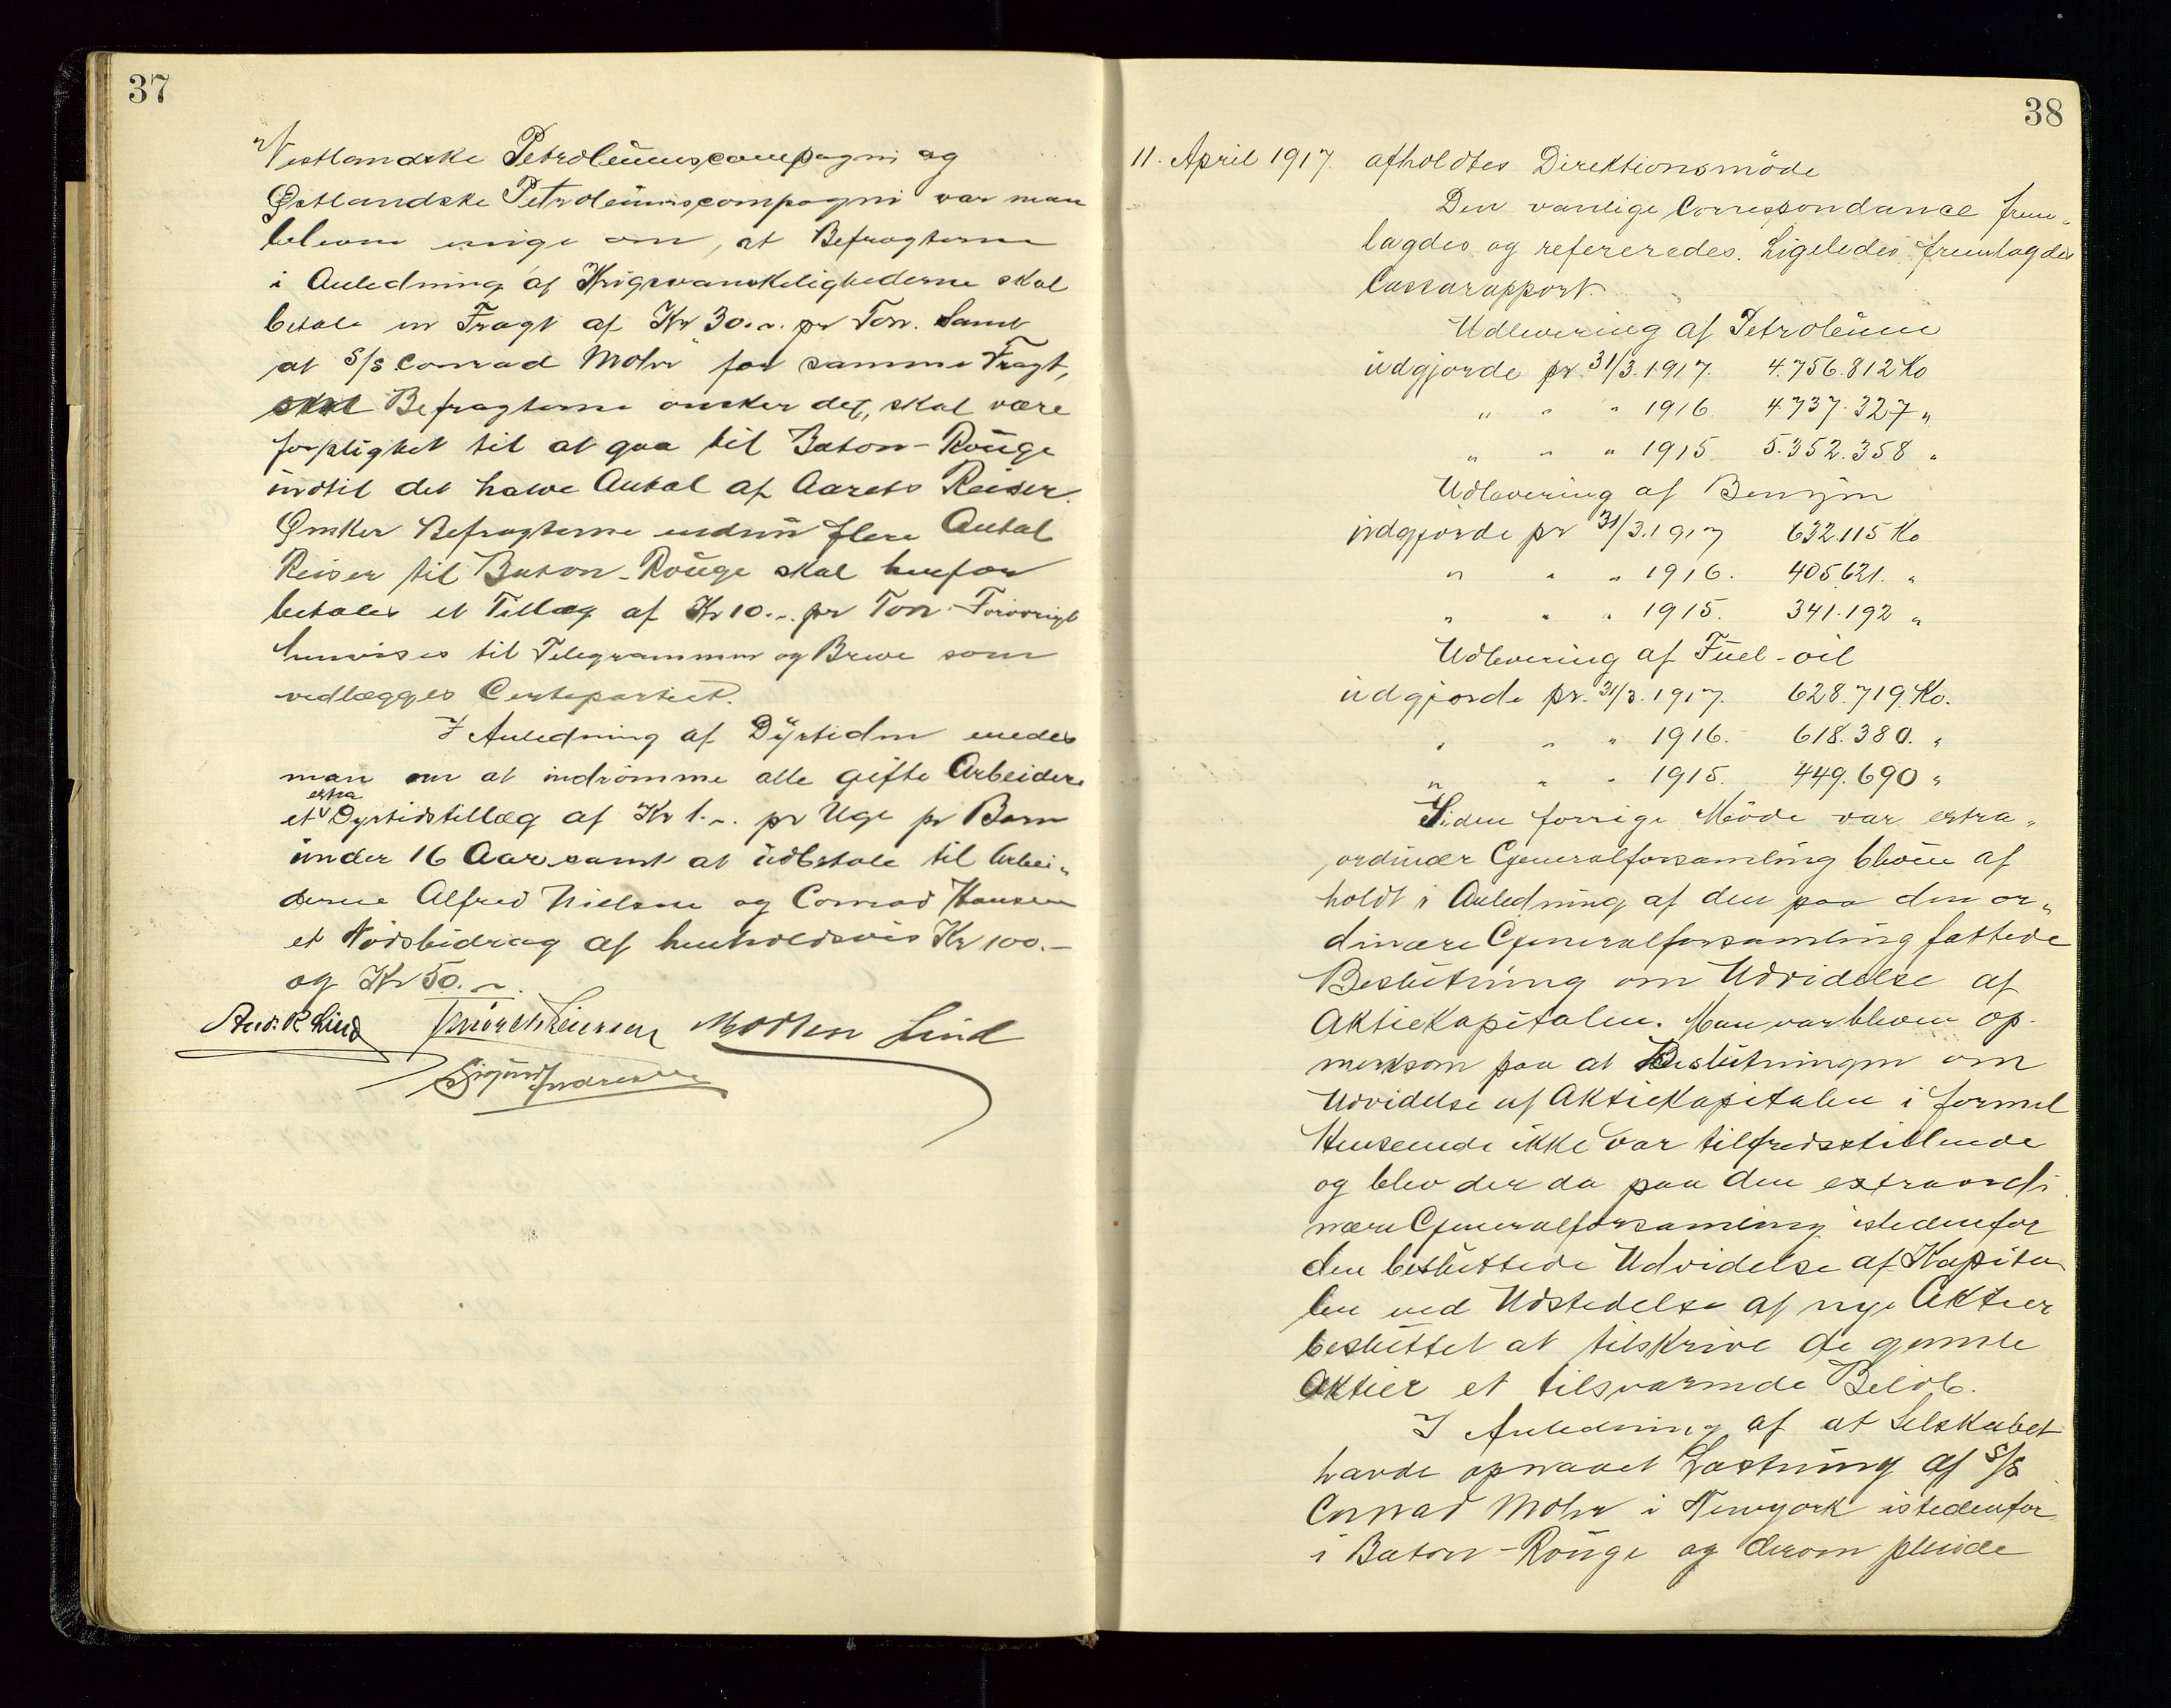 37
Vestlandske Petroleumscompagni og
Østlandske Petroleumscompagni var man
bleven enige om, at Befragterne
i Anledning af Krigsvanskelighederne skal
betale en Fragt af Kr 30.- pr Ton. Samt
at S/S Conrad Mohr" for samme Fragt,
Befragterne ønsker det, skal være
forpligtet til at gaa til Baton-Rouge
indtil det halve Antal af Aarets Reiser.
Ønsker Befragterne endnu flere Antal
Reiser til Baton-Rouge skal herfor
betales et Tillæg af Kr 10.- pr Ton. Forøvrigt
henvises til Telegrammer og Breve som
vedlægges Certepartiet.
I Anledning af Dyrtiden enedes
man om at indrømme alle gifte Arbeidere
et extra Dyrtidstillæg af Kr 1.- pr Uge pr Barn
under 16 Aar samt at udbetale til Arbei-
derne Alfred Nielsen og Conrad Hansen
et Nødsbidrag af henholdsvis Kr 100.-
og Kr 50.-
And. R Lind Morten Lind
Sigurd Andresen
38
11. April 1917. afholdtes Direktionsmøde
Den vanlige Correspondance frem-
lagdes og refereredes. Ligeledes fremlagdes
Cassarapport.
Udlevering af Petroleum
udgjorde pr. 31/3.1917. 4.756.812 Ko
" " " 1916 4.737.327 "
" " " 1915. 5.352.358 "
Udlevering af Benzin
udgjorde pr 31/3.1917 632.115 Ko
" " " 1916. 405621. "
" " " 1915. 341.192 "
Udlevering af Fuel-oil
udgjorde pr. 31/3.1917. 628.719. Ko.
" " " 1916. 618.380. "
" " " 1915. 449.690 "
Siden forrige Møde var extra-
ordinær Generalforsamling bleven af
holdt i Anledning af den paa den or-
dinære Generalforsamling fattede
Beslutning om Udvidelse af
Aktiekapitalen. Man var bleven op-
merksom paa at Beslutningen om
Udvidelse af Aktiekapitalen i formel
Henseende ikke var tilfredsstillende
og blev der da paa den extraordi
nære Generalforsamling istedenfor
den besluttede Udvidelse af Kapita
len ved Udstedelse af nye Aktier
besluttet at tilskrive de gamle
Aktier et tilsvarende Beløb.
I Anledning af at Selskabet
havde opnaaet Lastning af S/S
Conrad Mohr i Newyork istedenfor
i Baton-Rouge og derom pleiede